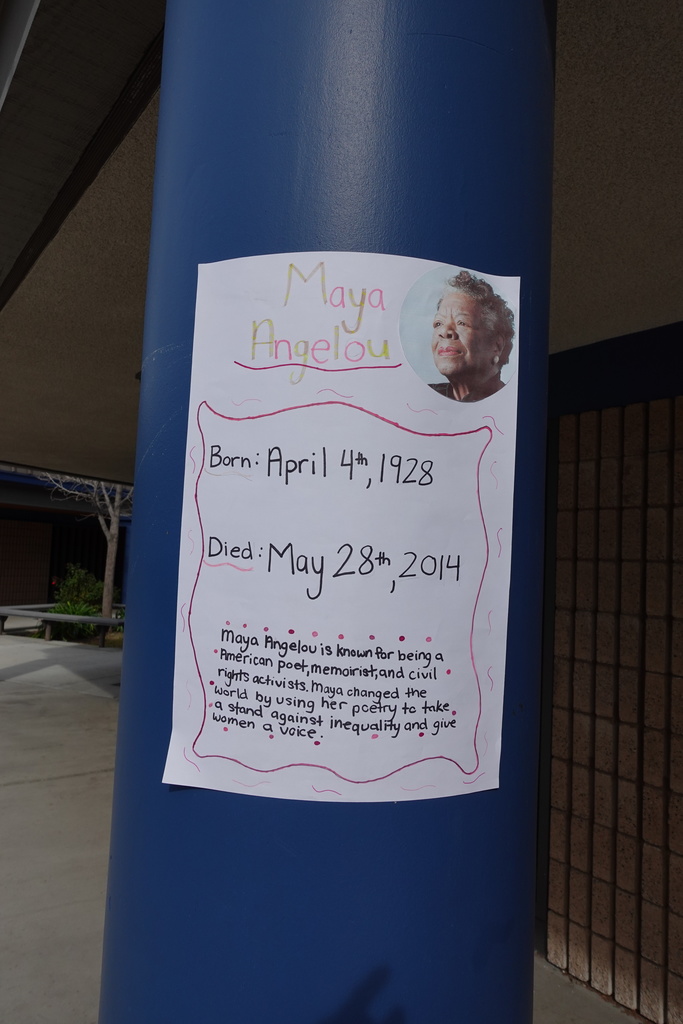 Maya
Angelou
Born: April 4th, 1928
Died: May 28th, 2014
Maya Angelou is known for being a
American poet, memoirist, and civil
rights activists. Maya changed the
world by using her poetry to take
a stand against inequality and give
women a voice.